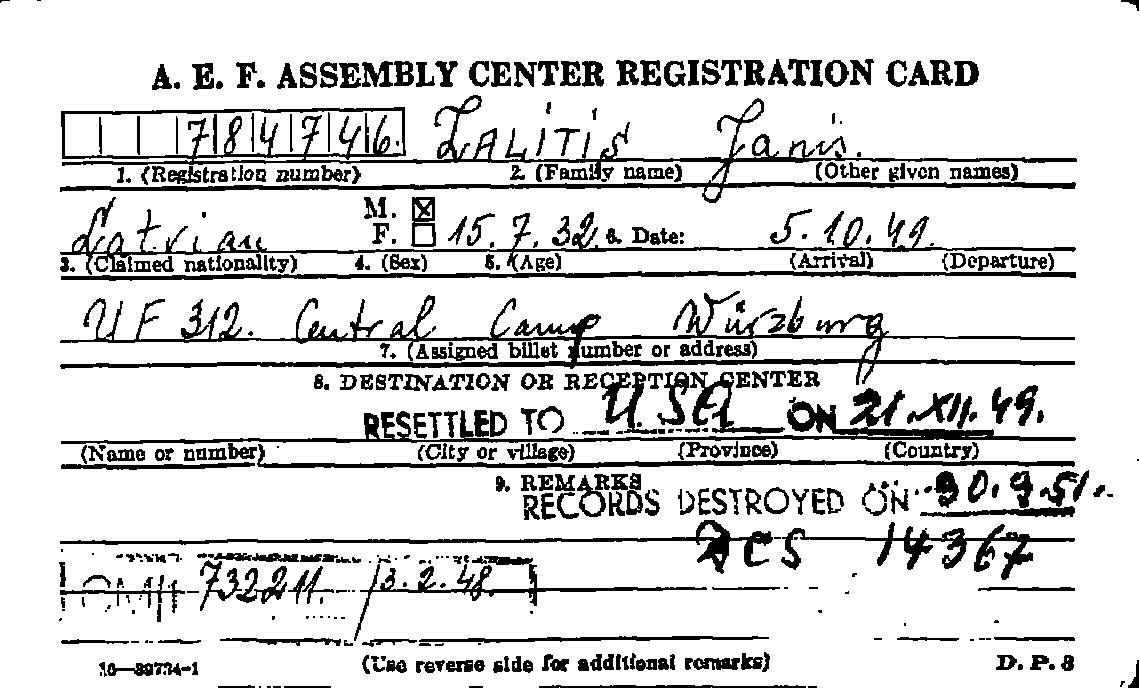 A. E. F. ASSEMBLY CENTER REGISTRATION CARD
784746. ZALITIS Janis.
1. (Registration number) 2. (Family name) (Other given names)
Latvian M. ☒ F. ☐ 15.7.32 6. Date: 5.10.49.
3. (Claimed nationality) 4. (Sex) 5. (Age) (Arrival) (Departure)
UF 312. Central Camp Würzburg
7. (Assigned billet number or address)
8. DESTINATION OR RECEPTION CENTER
RESETTLED TO USA ON 21.XII.49.
(Name or number) (City or village) (Province) (Country)
9. REMARKS
RECORDS DESTROYED ON 30.9.51.
DCS 14367
732211. 3.2.48.
16—39734-1 (Use reverse side for additional remarks) D. P. 3